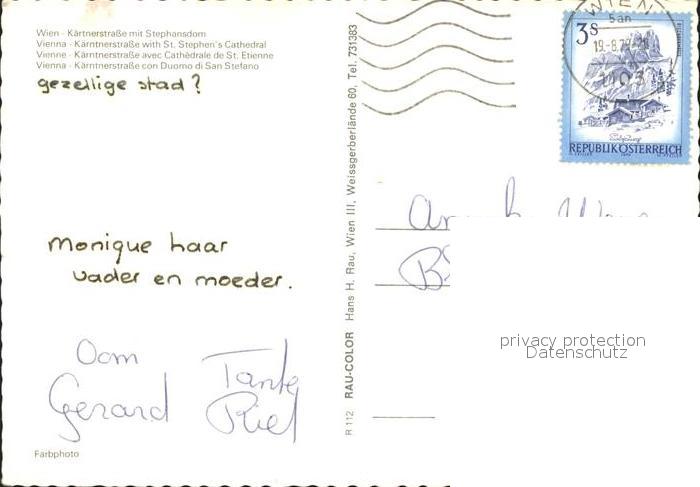 Wien - Kärtnerstraße mit Stephansdom
Vienna - Kärntnerstraße with St. Stephen's Cathedral
Vienne - Kärntnerstraße avec Cathèdrale de St. Etienne
Vienna - Kärntnerstraße con Duomo di San Stefano
gezellige stad?
Monique haar
vader en moeder.
Oom Tante
Gerard Riet
Farbphoto
R 112 RAU-COLOR Hans H. Rau, Wien III, Weissgerberlände 60, Tel. 731383
WIEN
5an
19.-8.79
1103
3s
REPUBLIK ÖSTERREICH
privacy protection
Datenschutz